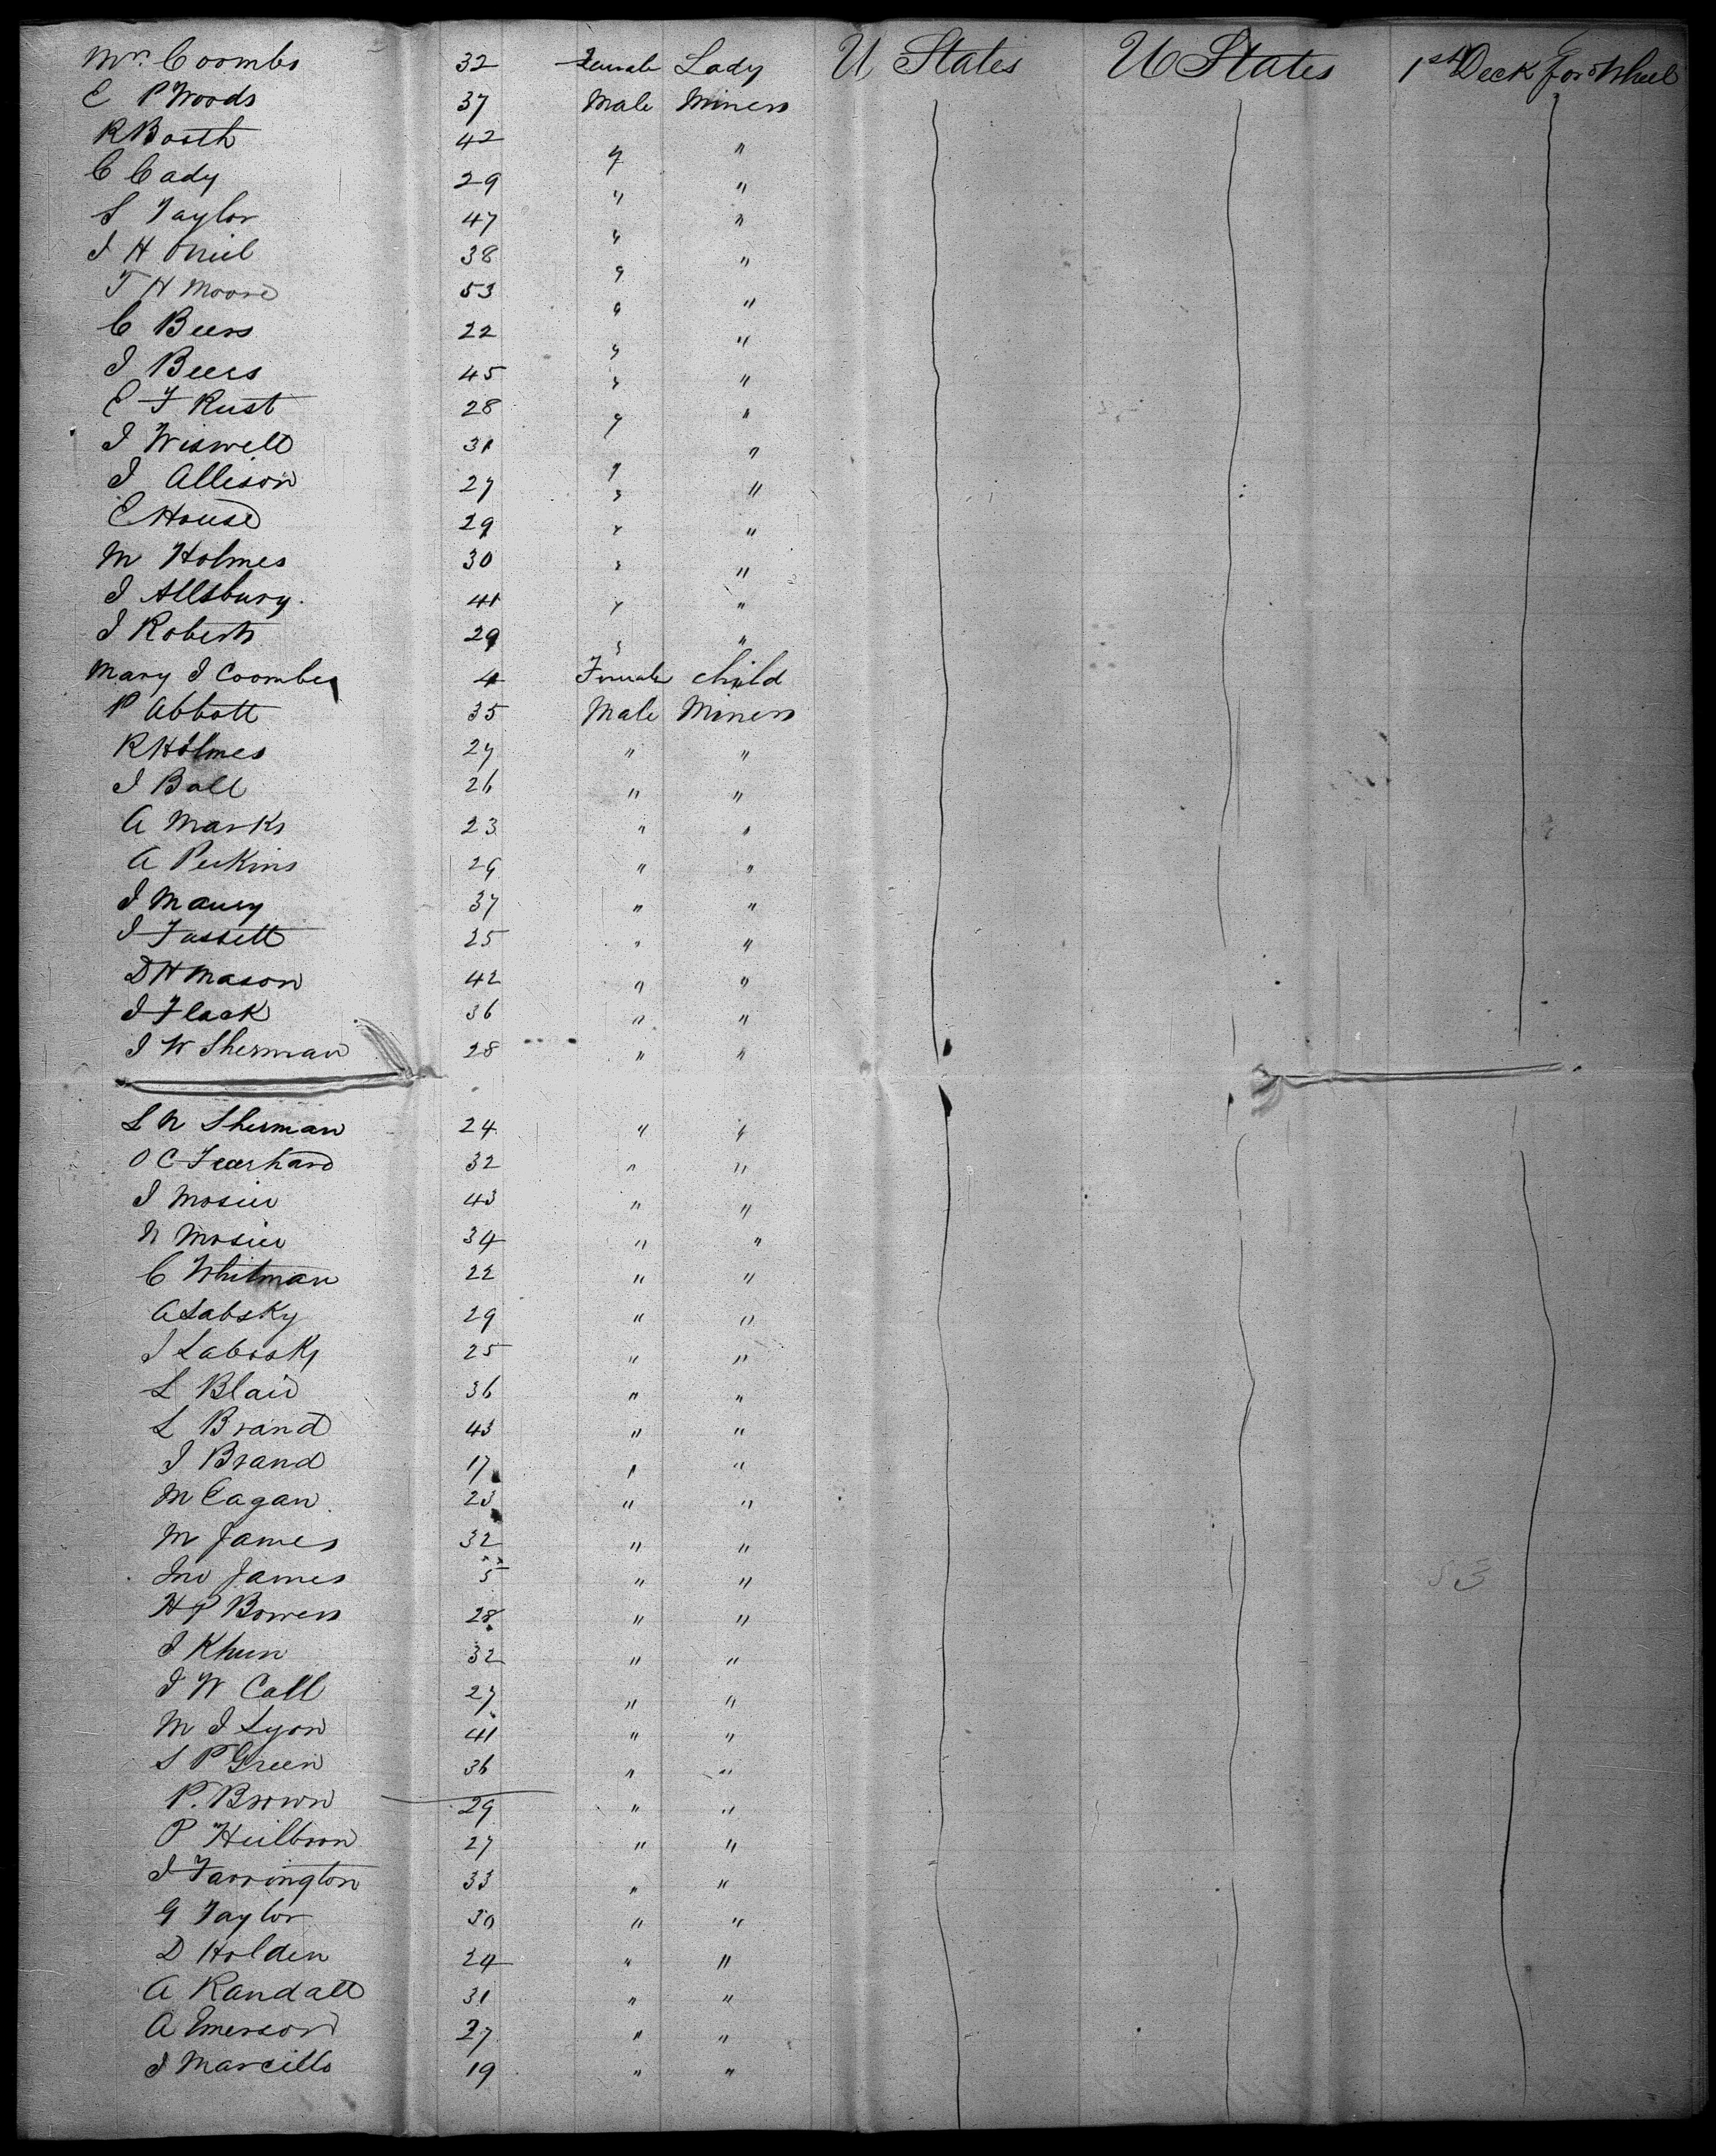 Mrs. Coombs 32 Female Lady U States U States 1st Deck for Wheel
E P Woods 37 Male Miners
R Booth 42 " "
C Cady 29 " "
S Taylor 47 " "
J H Oniel 38 " "
T H Moore 53 " "
C Beers 22 " "
J Beers 45 " "
E F Rust 28 " "
J Wiswell 31 " "
J Allison 27 " "
E House 29 " "
M Holmes 30 " "
J Allsbury. 41 " "
J Roberts 29 " "
Mary J Coombes 4 Female child
P Abbott 35 Male Miners
R Holmes 27 " "
J Ball 26 " "
A Marks 23 " "
A Perkins 29 " "
J Maury 37 " "
J Fassett 25 " "
D H Mason 42 " "
J Flack 36 " "
J W Sherman 28 " "
L N Sherman 24 " "
O C 32 " "
J Mosier 43 " "
N Mosier 34 " "
C Whitman 22 " "
A Labsky 29 " "
J Labosky 25 " "
L Blair 36 " "
L Brand 43 " "
J Brand 17 " "
M Eagan 23 " "
M James 32 " "
Jno James 5 " "
H P Bowers 28 " "
J Khun 32 " "
J W Call 27 " "
M J Lyon 41 " "
S P Green 36 " "
P. Brown 29 " "
P Heilbron 27 " "
J Farrington 33 " "
G Taylor 30 " "
D Holden 24 " "
A Randall 31 " "
A Emerson 27 " "
J Marcills 19 " "